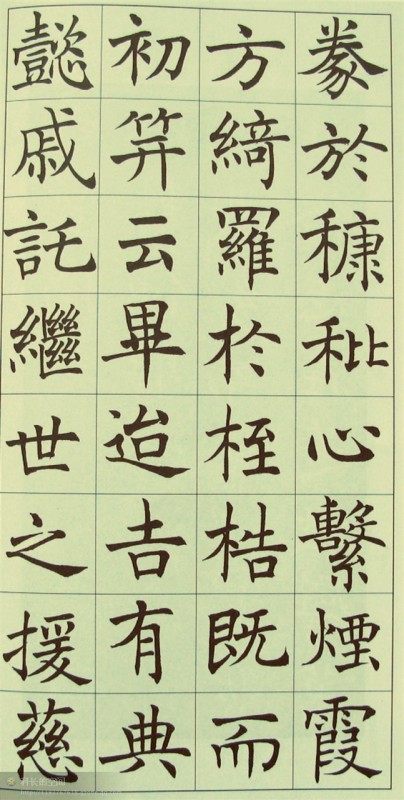 豢於穅秕心繫煙霞
方綺羅於桎梏既而
初笄云畢迨吉有典
懿戚託繼世之援慈